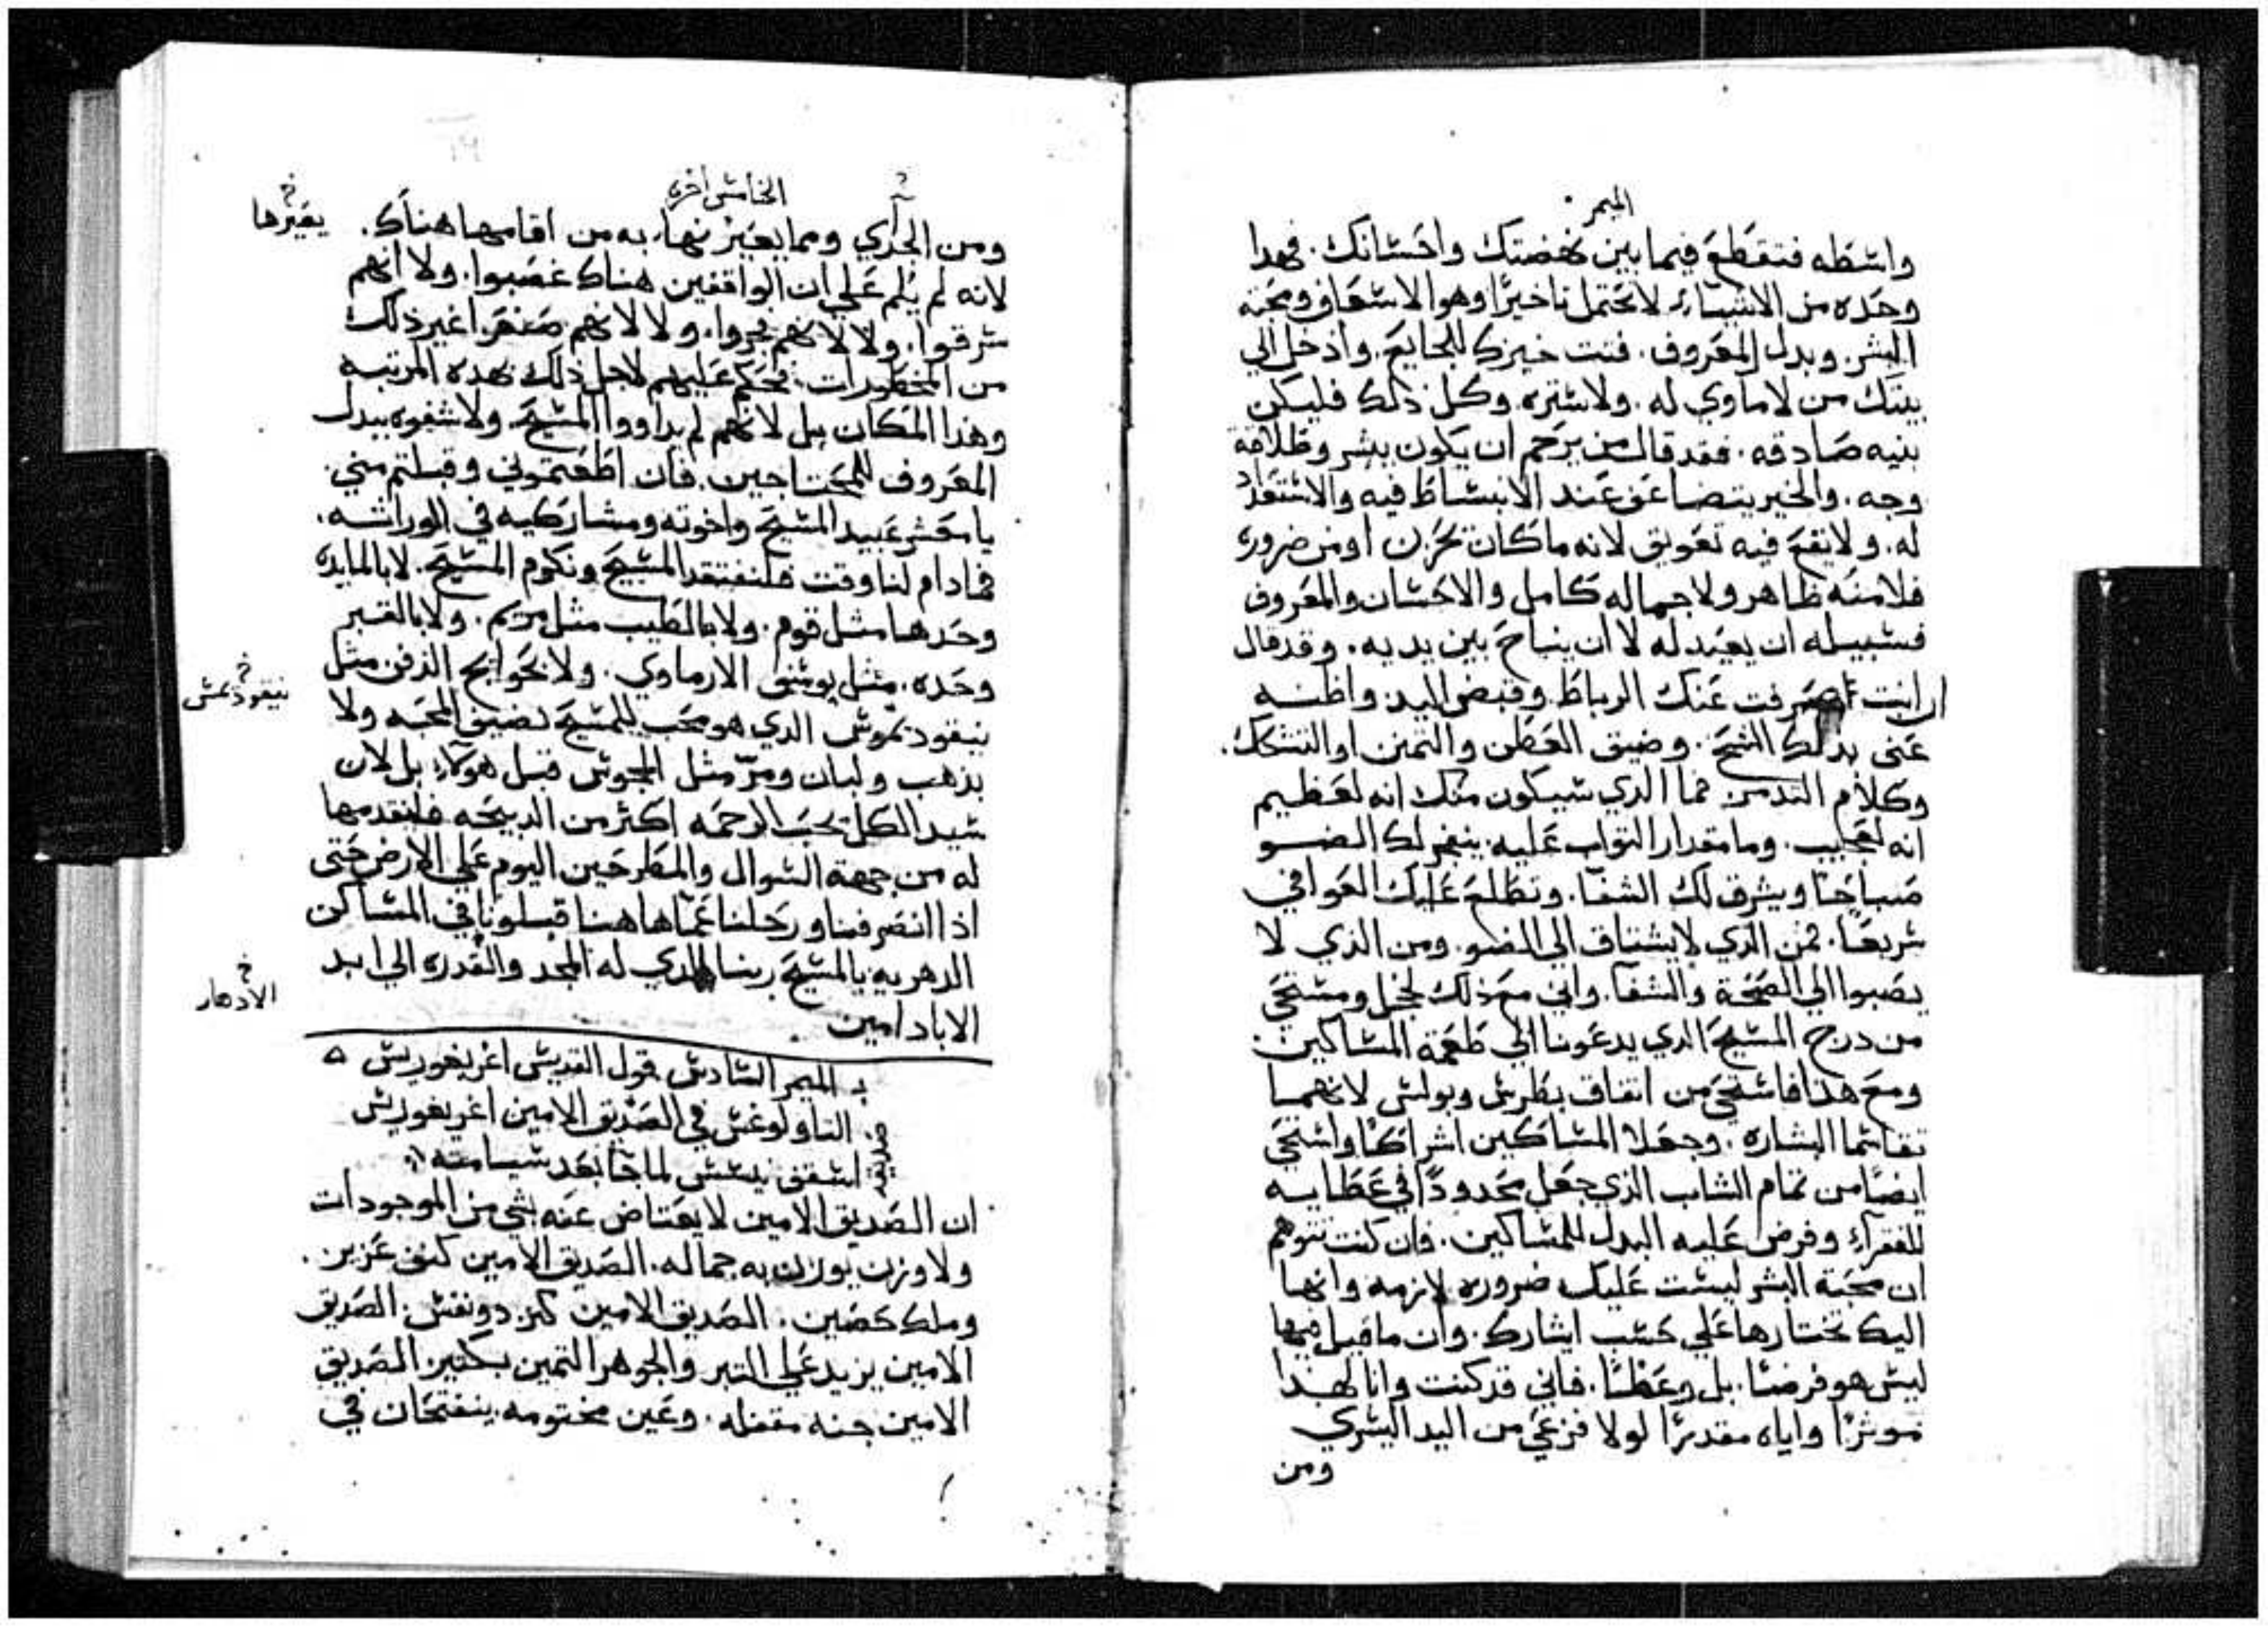 الميمر
واسطه فتقطع فيما بين نهضتك واحسانك. فهدا
وحده من الاشياء لا يحتمل تاخيرًا وهو الاسعاف ومحبة
البشر. وبدل المعروف. فتت خبزك للجايع. وادخل الي
بيتك من لا ماوي له. ولا ستره. وكل ذلك فليكن
بنيه صادقه. فقد قال من يرحم ان يكون ببشر وطلاقة
وجه. والخير يتضاعف عند الانبساط فيه والاستعداد
له. ولا يقع فيه تعويق لانه ما كان بحزن او من ضروره
فلا منه ظاهر ولا جماله كامل والاحسان والمعروف
فسبيله ان يعيد له لا ان يناح بين يديه. وقد قال
ان انت صرفت عنك الرباط وقبض اليد واظنه
عني بدلك الشح. وضيق العطن والتمنن او التشكك.
وكلام التدمر فما الدي سيكون منك انه لعظيم
انه لعجيب. وما مقدار التواب عليه ينفجر لك الضو
صباحًا ويشرق لك الشفا. وتطلع عليك العوافي
سريعًا. فمن الدي لا يشتاق الي الضو. ومن الذي لا
يصبوا الي الصحة والشفا. واني مع ذلك لخجل ومستحي
من درج المسيح الدي يدعونا الي طعمة المساكين.
ومع هذا فاستحي من اتفاق بطرس وبولس لانهما
تقاسما البشاره. وجعلا المساكين اشراكًا واستحي
ايضًا من تمام الشاب الذي جعل محدودًا في عطايه
للفقراء وفرض عليه البدل للمساكين. فان كنت تتوهم
ان محبة البشر ليست عليك ضروره لازمه وانها
اليك تختارها علي حسب ايثارك. وان ما قيل فيها
ليس هو فرضًا. بل وعظًا. فاني قد كنت وانا لهذا
موثرًا واياه مقدرًا لولا فزعي من اليد اليسري
ومن
الخامس اخره
ومن الجدي ومما يعير بها به من اقامها هناك.
يعيرها
لانه لم يلم علي ان الواقفين هناك غصبوا. ولا انهم
سرقوا. ولا لانهم فجروا. ولا لانهم صنعوا غير ذلك
من المحظورات. فحكم عليهم لاجل ذلك بهده المرتبه
وهذا المكان بل لانهم لم يداووا المسيح ولا شفوه ببدل
المعروف للمحتاجين. فان اطعتموني وقبلتم مني.
يا معشر عبيد المسيح واخوته ومشاركيه في الوراثه.
فما دام لنا وقت فلنفتقد المسيح ونكرم المسيح. لا بالمايده
وحدها مثل قوم. ولا بالطيب مثل مريم. ولا بالقبر
وحده. مثل يوسف الارماوي. ولا بحوايج الدفن مثل
نيقودمس
نيقودموس الدي هو محب للمسيح نصف المحبه ولا
بذهب ولبان ومرّ مثل المجوس قبل هولاء بل لان
سيد الكل يحب الرحمه اكثر من الدبيحه فلنقدمها
له من جهة السوال والمطرحين اليوم علي الارض حتي
اذا انصرفنا ورحلنا عما هاهنا قبلونا في المساكن
الدهريه بالمسيح ربنا الدي له المجد والقدره الي ابد
الادهار
الاباد امين
الميمر السادس قول القديس اغريغوريس
التاولوغس في الصديق الامين اغريغوريس
اسقف نيسس لما جا بعد سيامته
ان الصديق الامين لا يعتاض عنه بشي من الموجودات
ولا وزن يوزن به جماله. الصديق الامين كنف عزيز.
وملك حصين. الصديق الامين كنز دو نفس. الصديق
الامين يزيد علي التبر والجوهر التمين بكتير. الصديق
الامين جنه مقفله. وعين مختومه ينفتحان في